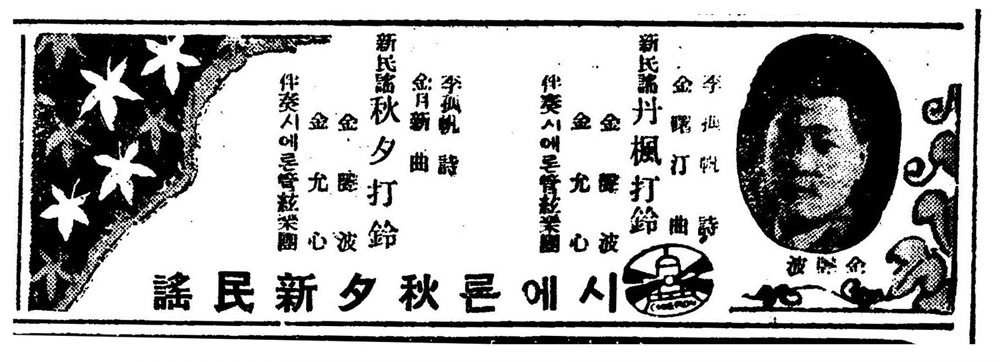 李孤帆 詩
金曙汀 曲
新民謠 丹楓打鈴
金 波
金允心
伴奏시에론管絃楽團
李孤帆 詩
金月新 曲
新民謠 秋夕打鈴
金 波
金允心
伴奏시에론管絃楽團
金 波
시에론秋夕新民謠